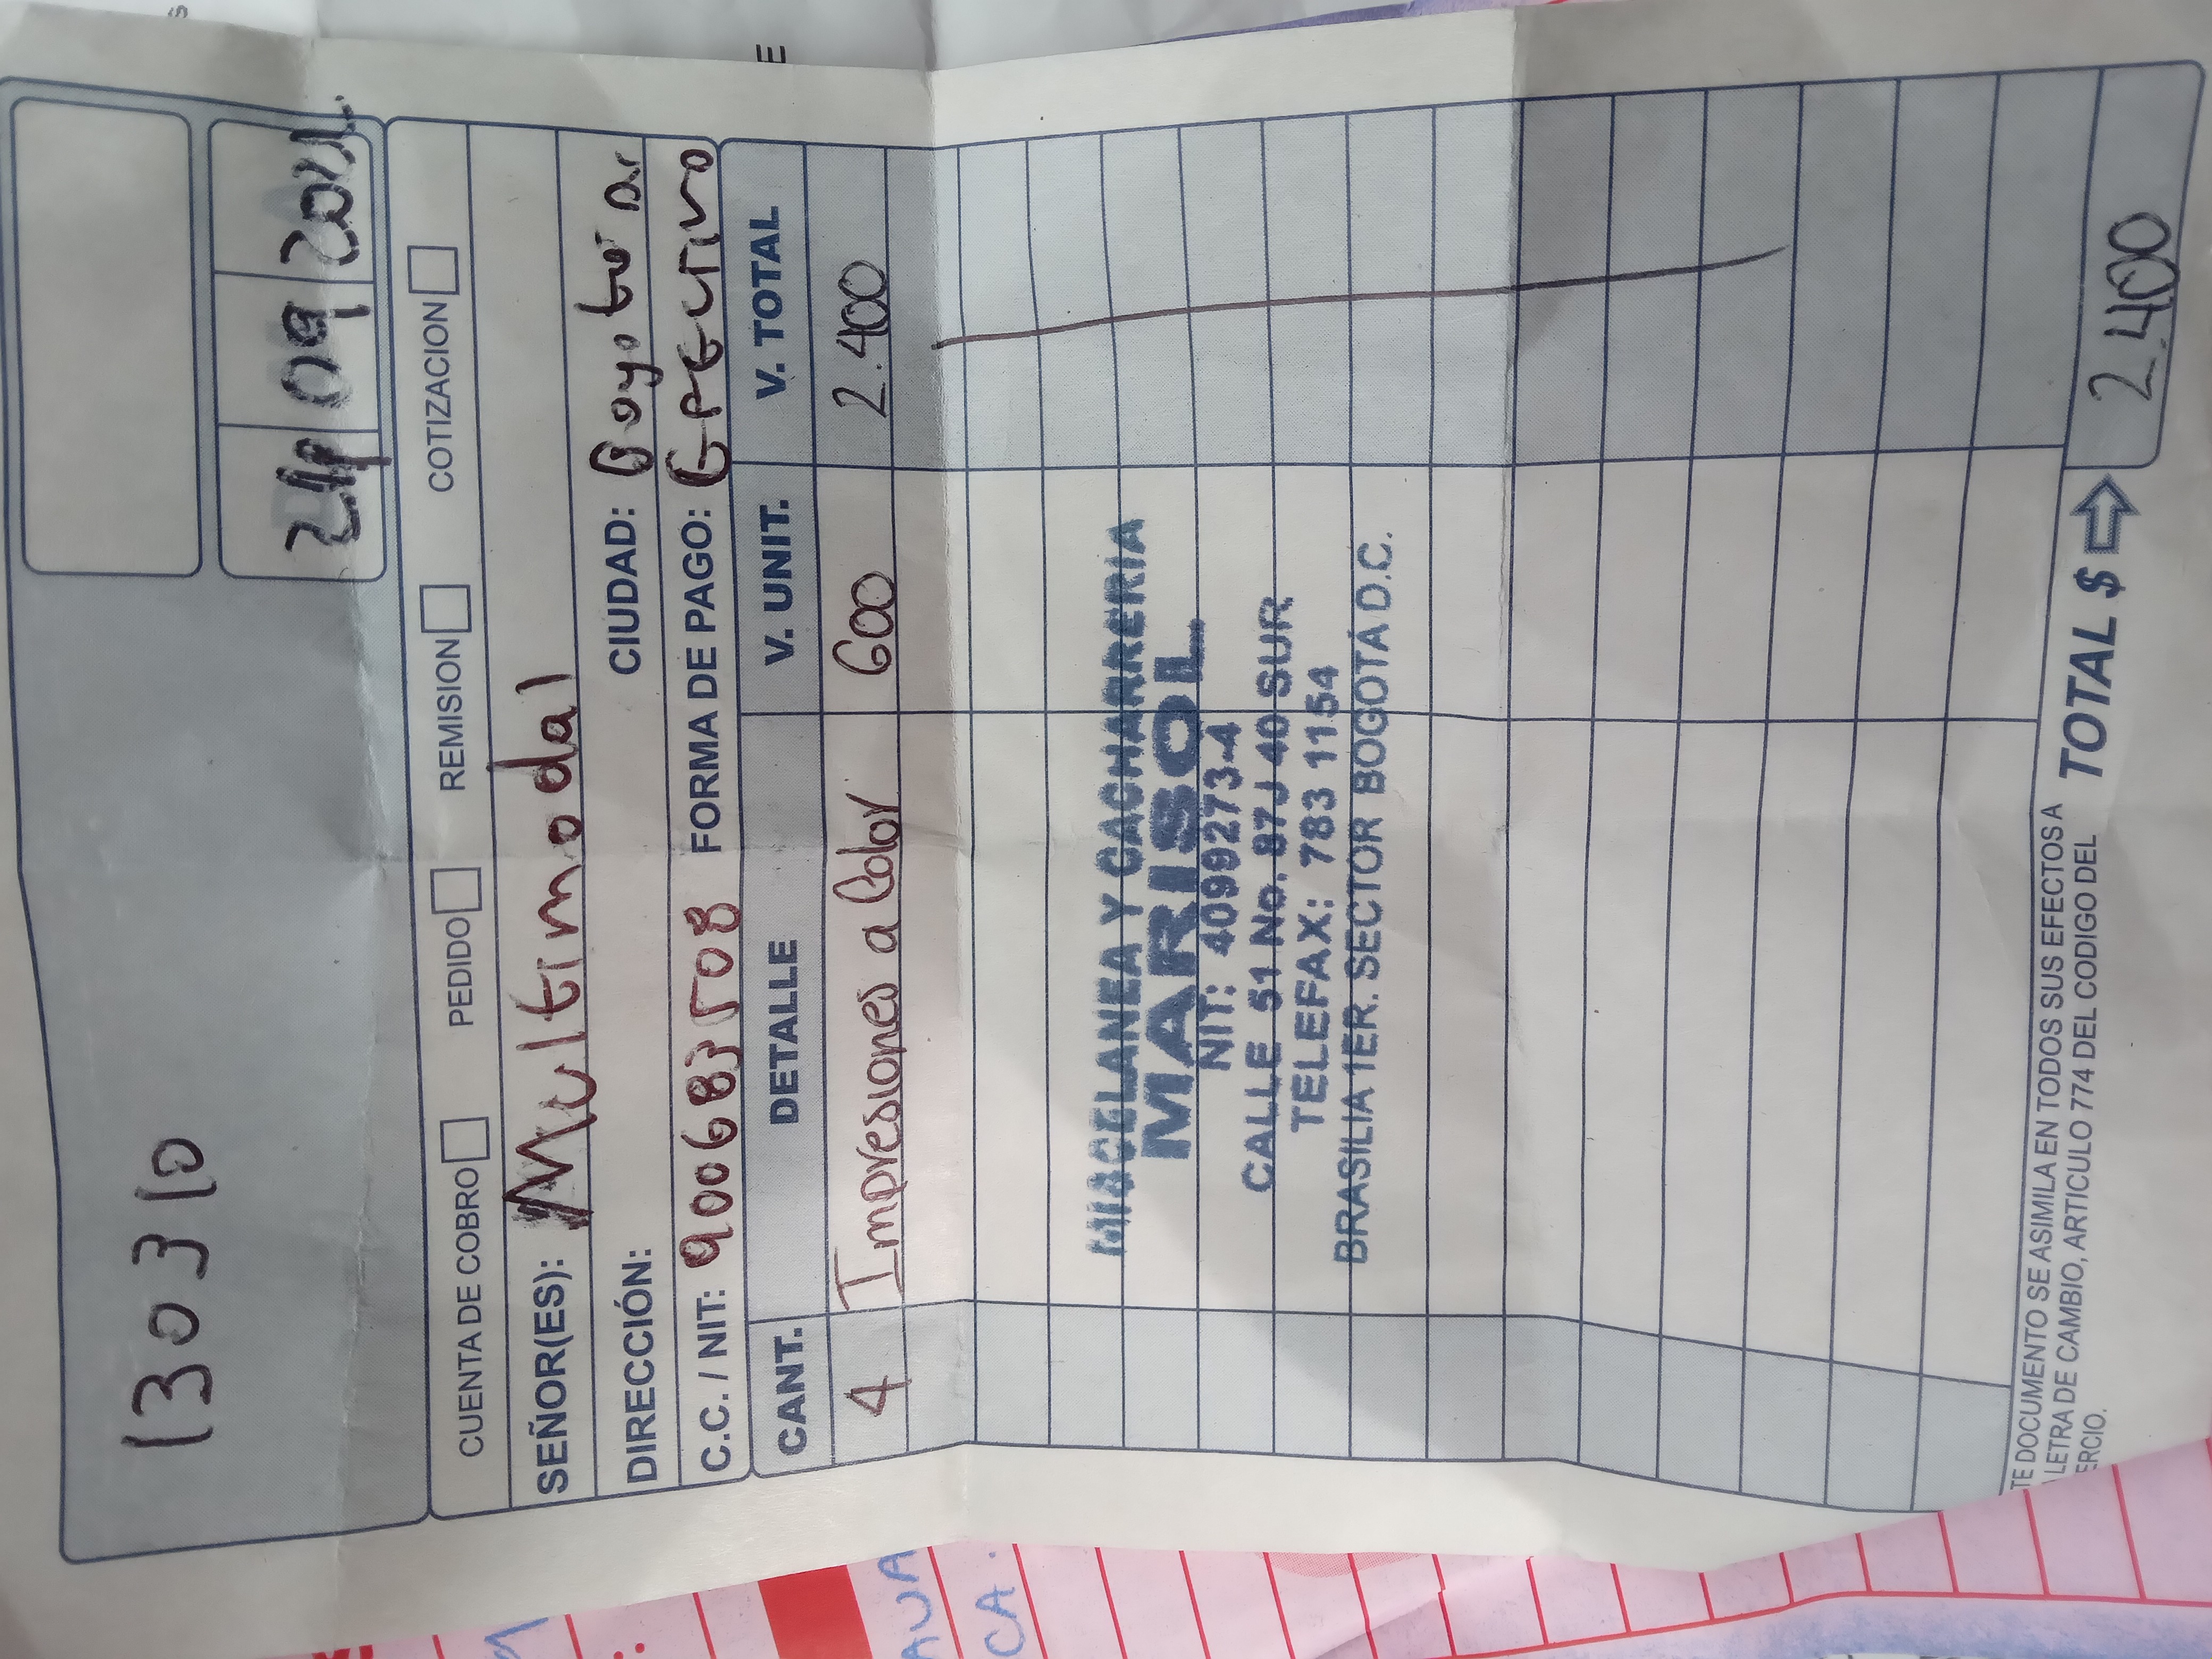 130310
09
CUENTA DE COBRO PEDIDO REMISION COTIZACION
SEÑOR(ES): Multimodal
DIRECCIÓN: CIUDAD: Bogotá D.C
C.C. / NIT: 900683508 FORMA DE PAGO: Efectivo
CANT. DETALLE V. UNIT. V. TOTAL
4 Impresiones a Color 600 2.400
MISCELANEA Y CACHARRERIA
MARISOL
NIT: 4099273-4
CALLE 51 No. 87J 40 SUR
TELEFAX: 783 1154
BRASILIA 1ER. SECTOR BOGOTÁ D.C.
TE DOCUMENTO SE ASIMILA EN TODOS SUS EFECTOS A
LETRA DE CAMBIO, ARTICULO 774 DEL CODIGO DEL
ERCIO.
TOTAL $ 2.400
CA.